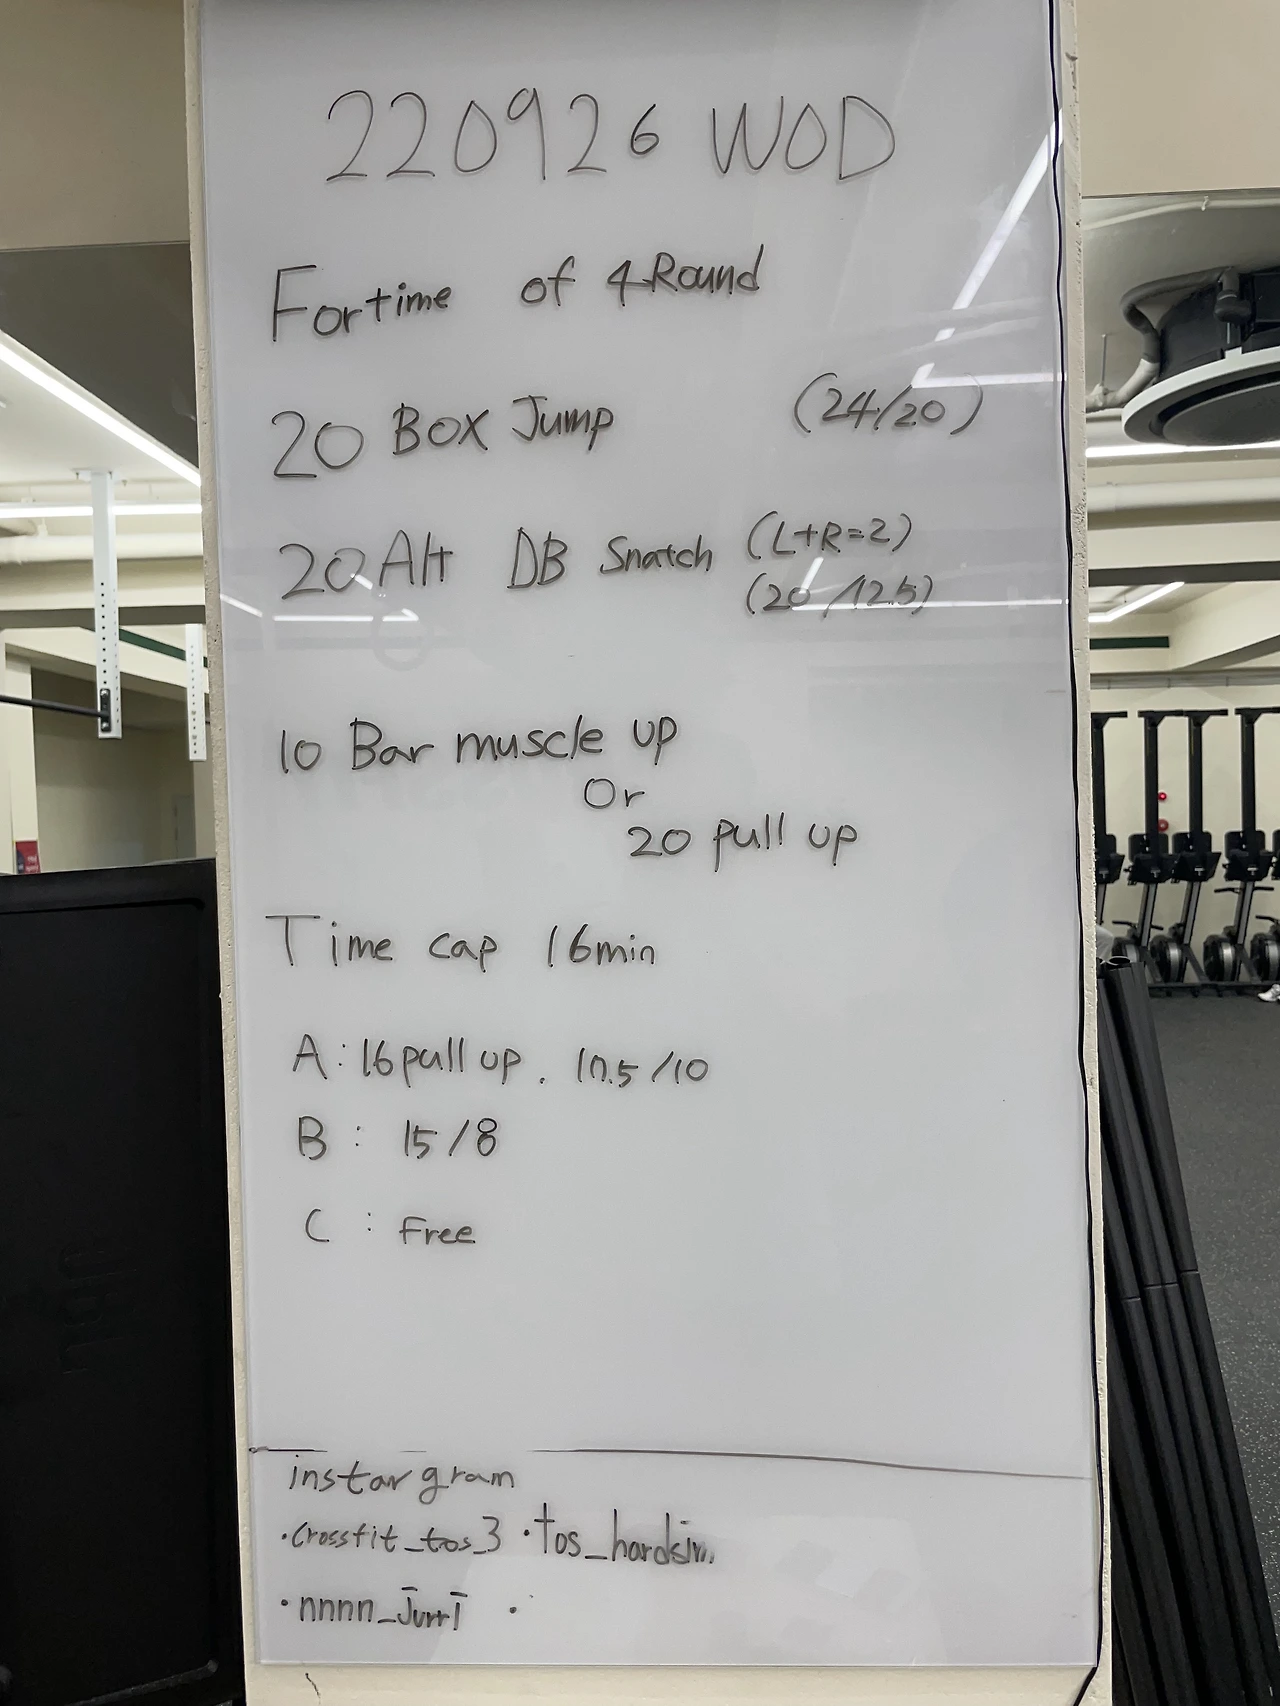 220926 WOD
For time of 4 Round
20 Box Jump (24/20)
20 Alt DB Snatch (L+R=2)
(20/12.5)
10 Bar muscle up
Or
20 pull up
Time cap 16min
A : 16 pull up. 17.5/10
B : 15/8
C : Free
instargram
·crossfit_tos_3 ·
·nnnn_Jurri ·